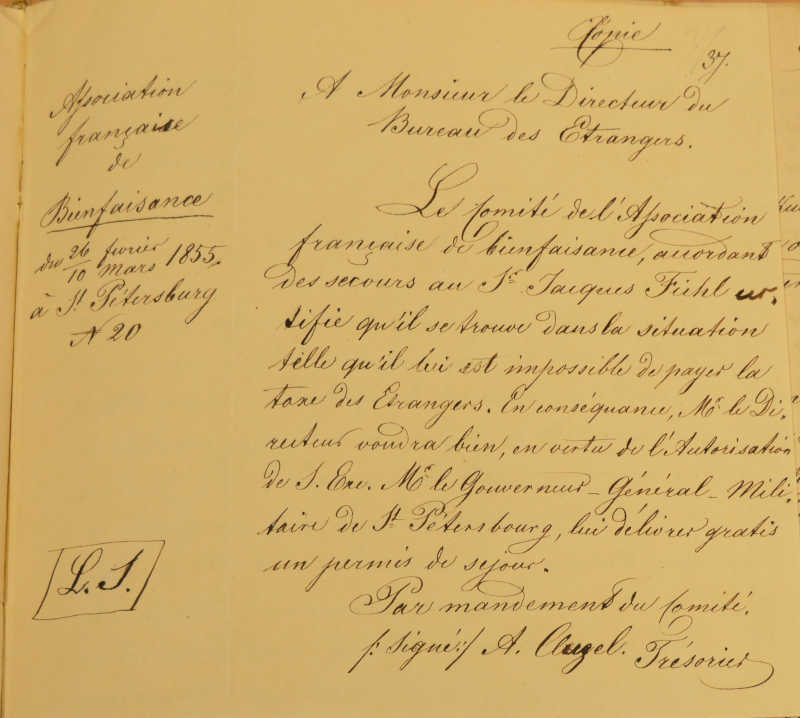 Copie
37.
Association
française
de
Bienfaisance
du 26/10 fevrier/Mars 1855,
à St Pétersburg
N 20
A Monsieur le Directeur du
Bureau des Etrangers.
Le Comité de l'Association
française de bienfaisance, accordant
des secours au Sr. Jacques Fiehl cer-
tifie qu'il se trouve dans la situation
telle qu'il lui est impossible de payer la
taxe des Etrangers. En conséquance, Mr. le Di-
recteur voudra bien, en vertu de l'Autorisation
de S. Exe. Mr. le Gouverneur-Général-Mili-
taire de St. Pétersbourg, lui délivrer gratis
un permis de sejour.
Par mandement du Comité.
/: Signé :/ A. Cluzel. Trésorier
L. S.